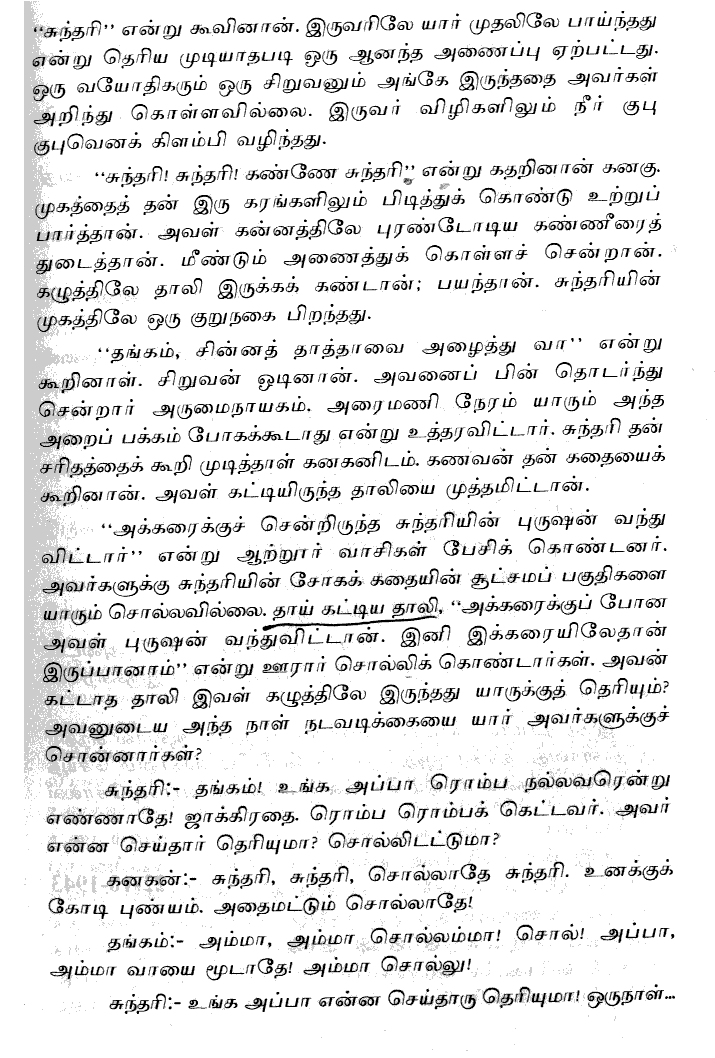 “சுந்தரி” என்று கூவினான். இருவரிலே யார் முதலிலே பாய்ந்தது
என்று தெரிய முடியாதபடி ஒரு ஆனந்த அணைப்பு ஏற்பட்டது.
ஒரு வயோதிகரும் ஒரு சிறுவனும் அங்கே இருந்ததை அவர்கள்
அறிந்து கொள்ளவில்லை. இருவர் விழிகளிலும் நீர் குபு
குபுவெனக் கிளம்பி வழிந்தது.
“சுந்தரி! சுந்தரி! கண்ணே சுந்தரி” என்று கதறினான் கனகு.
முகத்தைத் தன் இரு கரங்களிலும் பிடித்துக் கொண்டு உற்றுப்
பார்த்தான். அவள் கன்னத்திலே புரண்டோடிய கண்ணீரைத்
துடைத்தான். மீண்டும் அணைத்துக் கொள்ளச் சென்றான்.
கழுத்திலே தாலி இருக்கக் கண்டான்; பயந்தான். சுந்தரியின்
முகத்திலே ஒரு குறுநகை பிறந்தது.
“தங்கம், சின்னத் தாத்தாவை அழைத்து வா” என்று
கூறினாள். சிறுவன் ஓடினான். அவனைப் பின் தொடர்ந்து
சென்றார் அருமைநாயகம். அரைமணி நேரம் யாரும் அந்த
அறைப் பக்கம் போகக்கூடாது என்று உத்தரவிட்டார். சுந்தரி தன்
சரிதத்தைக் கூறி முடித்தாள் கனகனிடம். கணவன் தன் கதையைக்
கூறினான். அவள் கட்டியிருந்த தாலியை முத்தமிட்டான்.
“அக்கரைக்குச் சென்றிருந்த சுந்தரியின் புருஷன் வந்து
விட்டார்” என்று ஆற்றூர் வாசிகள் பேசிக் கொண்டனர்.
அவர்களுக்கு சுந்தரியின் சோகக் கதையின் சூட்சமப் பகுதிகளை
யாரும் சொல்லவில்லை. தாய் கட்டிய தாலி, “அக்கரைக்குப் போன
அவள் புருஷன் வந்துவிட்டான். இனி இக்கரையிலேதான்
இருப்பானாம்” என்று ஊரார் சொல்லிக் கொண்டார்கள். அவன்
கட்டாத தாலி இவள் கழுத்திலே இருந்தது யாருக்குத் தெரியும்?
அவனுடைய அந்த நாள் நடவடிக்கையை யார் அவர்களுக்குச்
சொன்னார்கள்?
சுந்தரி:- தங்கம்! உங்க அப்பா ரொம்ப நல்லவரென்று
எண்ணாதே! ஜாக்கிரதை. ரொம்ப ரொம்பக் கெட்டவர். அவர்
என்ன செய்தார் தெரியுமா? சொல்லிடட்டுமா?
கனகன்:- சுந்தரி, சுந்தரி, சொல்லாதே சுந்தரி. உனக்குக்
கோடி புண்யம். அதைமட்டும் சொல்லாதே!
தங்கம்:- அம்மா, அம்மா சொல்லம்மா! சொல்! அப்பா,
அம்மா வாயை மூடாதே! அம்மா சொல்லு!
சுந்தரி:- உங்க அப்பா என்ன செய்தாரு தெரியுமா! ஒருநாள்...